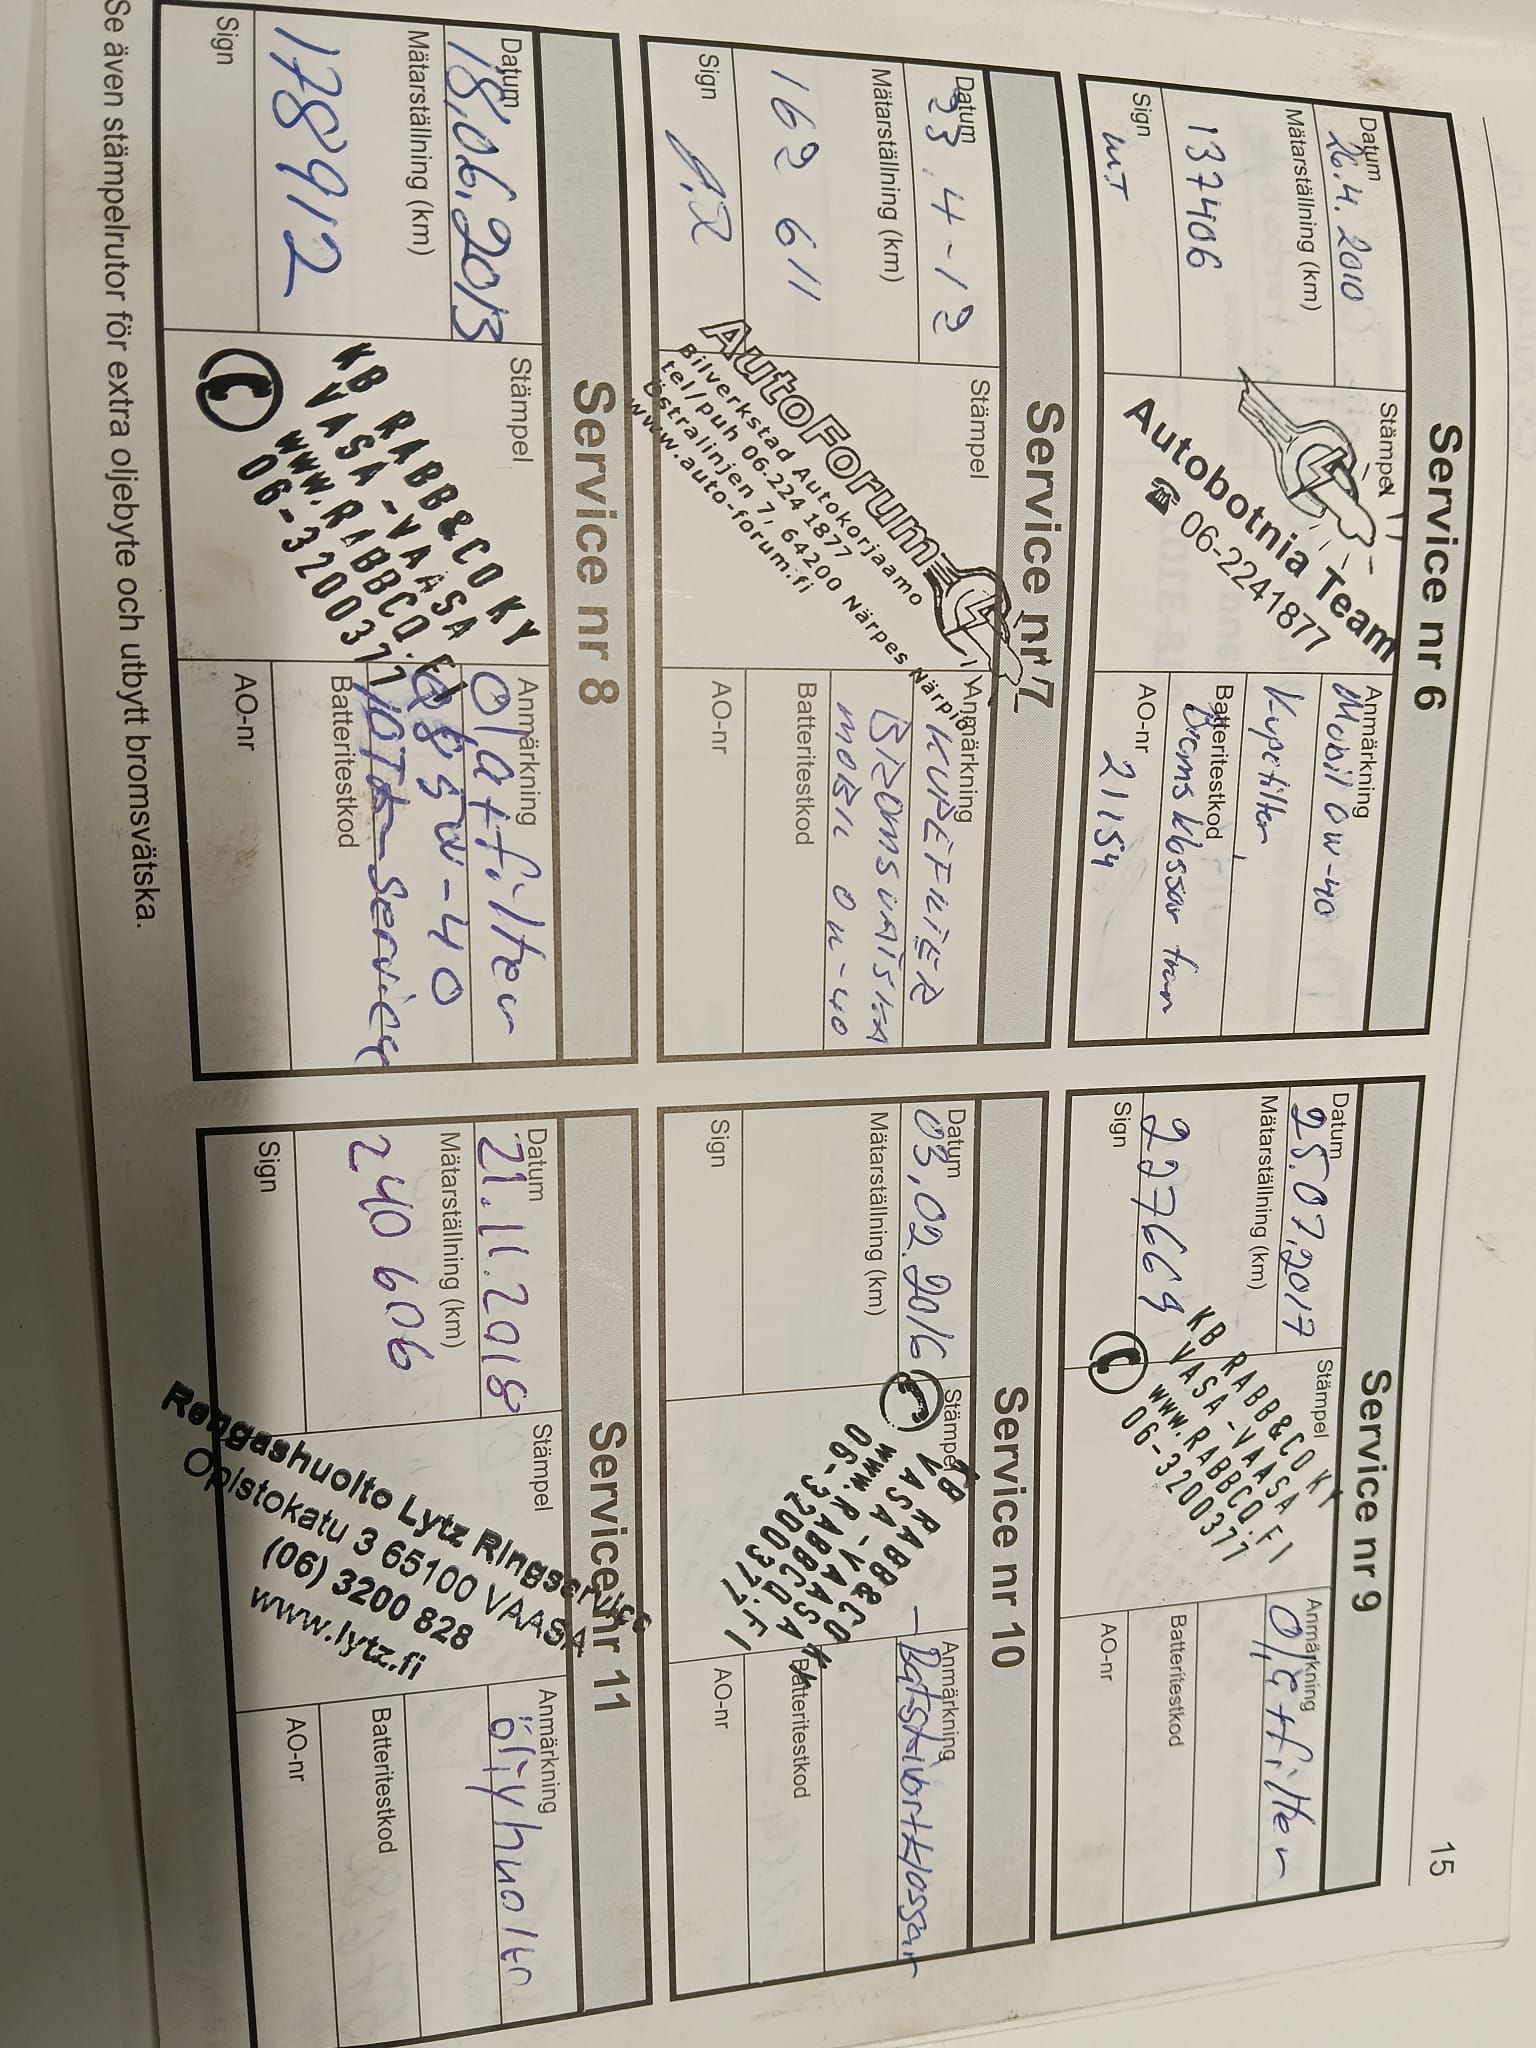 15
Service nr 6
Datum
26.4.2010
Mätarställning (km)
137406
Sign
M.T
Stämpel
Autobotnia Team
☎ 06-2241877
Anmärkning
Mobil 0W-40
Kupefilter
Batteritestkod
Bromsklossar fram
AO-nr
21154
Service nr 7
Datum
23.4-12
Mätarställning (km)
162 611
Sign
Stämpel
AutoForum
Bilverkstad Autokorjaamo
tel/puh 06-224 1877
Östralinjen 7, 64200 Närpes Närpiö
www.auto-forum.fi
Anmärkning
KUPEFILTER
BROMSVÄTSKA
MOBIL 0W-40
Batteritestkod
AO-nr
Service nr 8
Datum
18.06.2013
Mätarställning (km)
178912
Sign
Stämpel
KB RABB&CO KY
VASA-VAASA
www.RABBCO.FI
06-3200377
Anmärkning
Olja+filter
5W-40
Batteritestkod
service
AO-nr
Service nr 9
Datum
25.07.2017
Mätarställning (km)
227669
Sign
Stämpel
KB RABB&CO KY
VASA-VAASA
www.RABBCO.FI
06-3200377
Anmärkning
Olja+filter
Batteritestkod
AO-nr
Service nr 10
Datum
03.02.2016
Mätarställning (km)
Sign
Stämpel
KB RABB&CO KY
VASA-VAASA
www.RABBCO.FI
06-3200377
Anmärkning
Batteritestkod
AO-nr
Service nr 11
Datum
21.11.2018
Mätarställning (km)
240 606
Sign
Stämpel
Rengashuolto Lytz Ringservice
Opistokatu 3 65100 VAASA
(06) 3200 828
www.lytz.fi
Anmärkning
öljyhuolto
Batteritestkod
AO-nr
Se även stämpelrutor för extra oljebyte och utbytt bromsvätska.